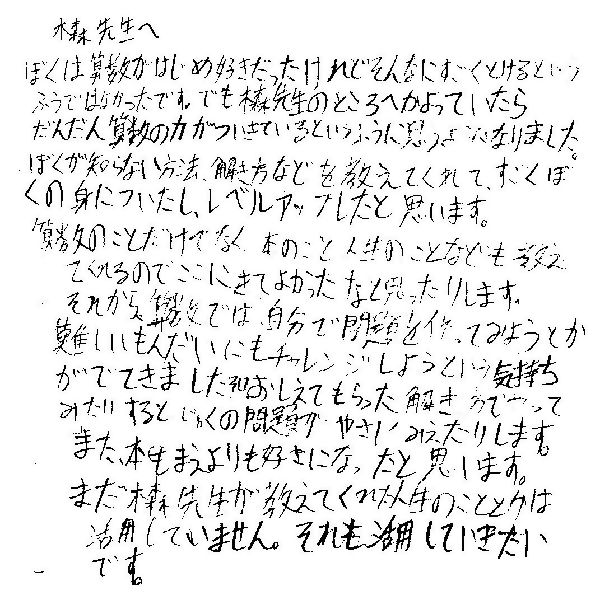 水森先生へ
ぼくは算数がはじめ好きだったけれどそんなにすごくとけるという
ふうではなかったです。でも水森先生のところへかよっていたら
だんだん算数の力がついてきているというふうに思うようになりました。
ぼくが知らない方法、解き方などを教えてくれて、すごくぼ
くの身についたし、レベルアップしたと思います。
算数のことだけでなく本のこと人生のことなども教え
てくれるのでここにきてよかったなと思ったりします。
それから算数では、自分で問題を作ってみようとか
難しいもんだいにもチャレンジしようという気持ち
がでてきました。おしえてもらった解き方でやって
みたりするとじゅくの問題がやさしくみえたりします。
また、本もまえよりも好きになったと思います。
まだ水森先生が教えてくれた人生のことは
活用していません。それも活用していきたい
です。